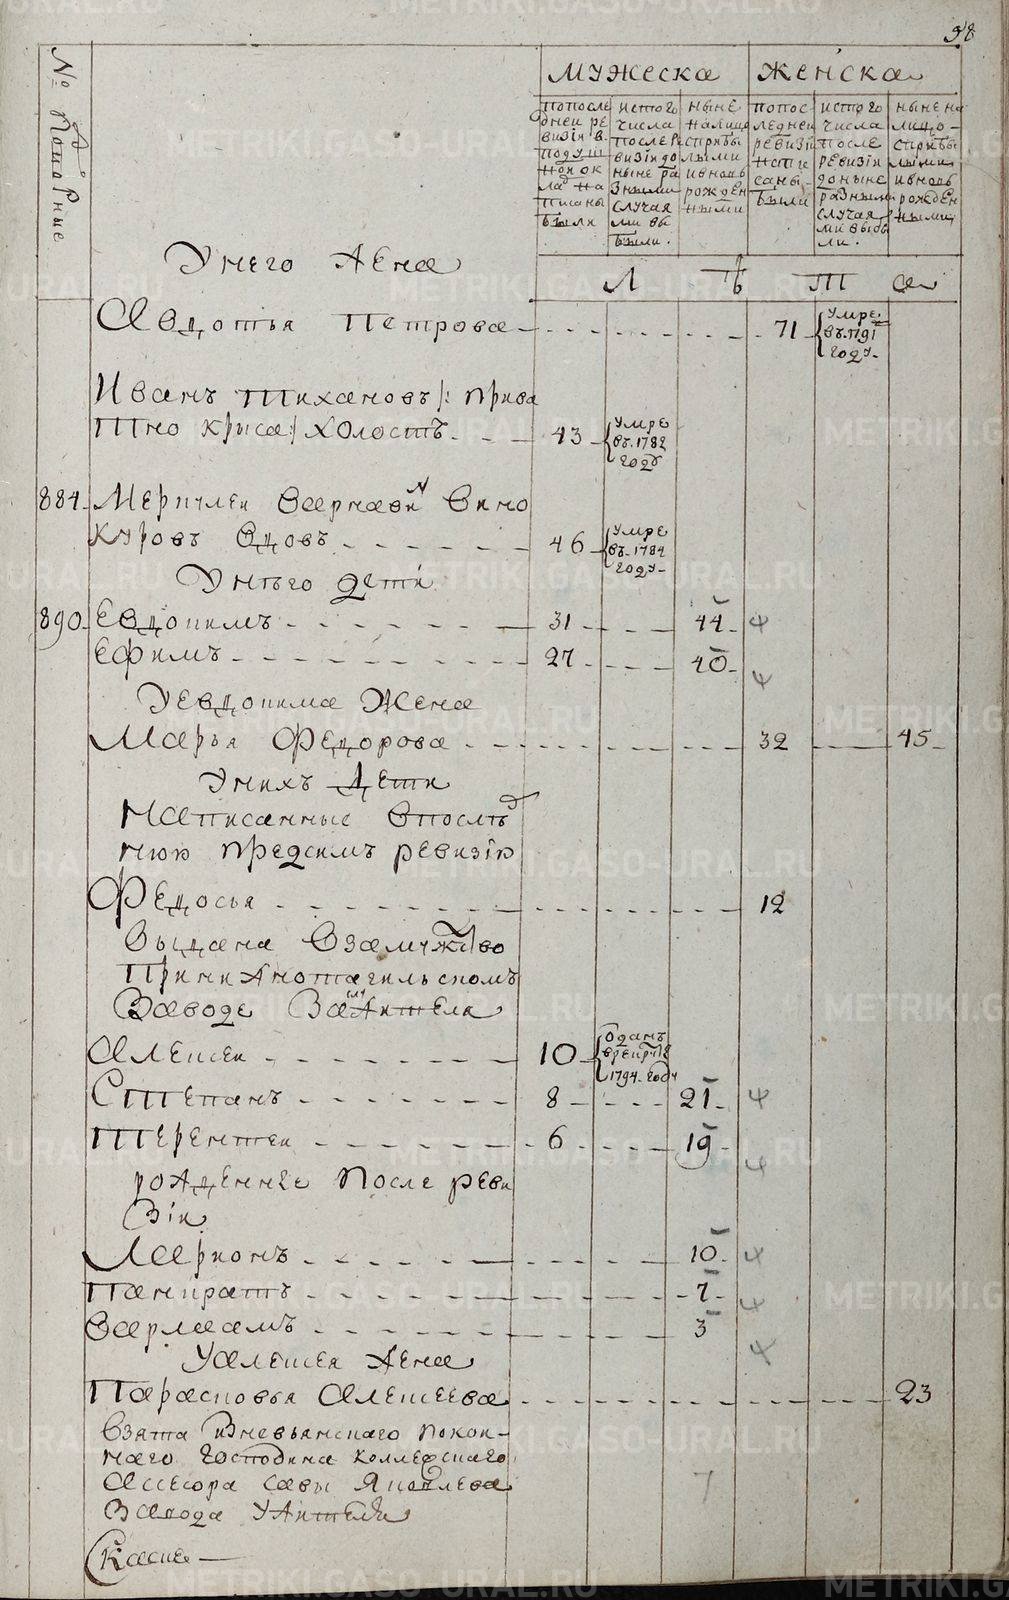 98
№ Подворные
мужеска
женска
попосле
дней ре
визiи в
подуш
ной ок
лад на
писаны
были
истого
числа
после ре
визiи до
ныне ра
зными
случая
ми вы
были.
ныне
налице
сприбы
лыми
ивновь
рожден
ными
попос
ледней
ревизiи
написаны
были
истого
числа
после
ревизiи
доныне
разными
случая
ми выбы
ли.
ныне на
лицо
сприбы
лыми
ивновь
рожден
ными
Унего жена
Л Ѣ Т а
Авдотья Петрова 71 умре
въ 1791
году
Иванъ Тихановъ /: прива
тно крыса :/ холостъ 43 умре
въ 1782
году
884 Меркулей Варнавин Вино
куровъ вдовъ 46 умре
въ 1784
году
Унѣго дети
890 Евдокимъ 31 44
Ефимъ 27 40
У Евдокима Жена
Марья Федорова 32 45
Унихъ дети
написанные впослѣд
нюю предсимъ ревизiю
Федосья 12
Выдана взамужство
при нижнотагильскомъ
Заводе За жителя
Алексей 10 Отданъ
врекруты
1794 году
Степанъ 8 21
Терентей 6 19
рожденные после реви
зiи
Ларионъ 10
Панкратъ 7
Варлаамъ 3
У Алексея жена
Парасковья Алексеева 23
Взята изневьянскаго покой
наго господина коллежскаго
ассесора Савы Яковлева
Завода Ужителя
7
METRIKI.GASO-URAL.RU